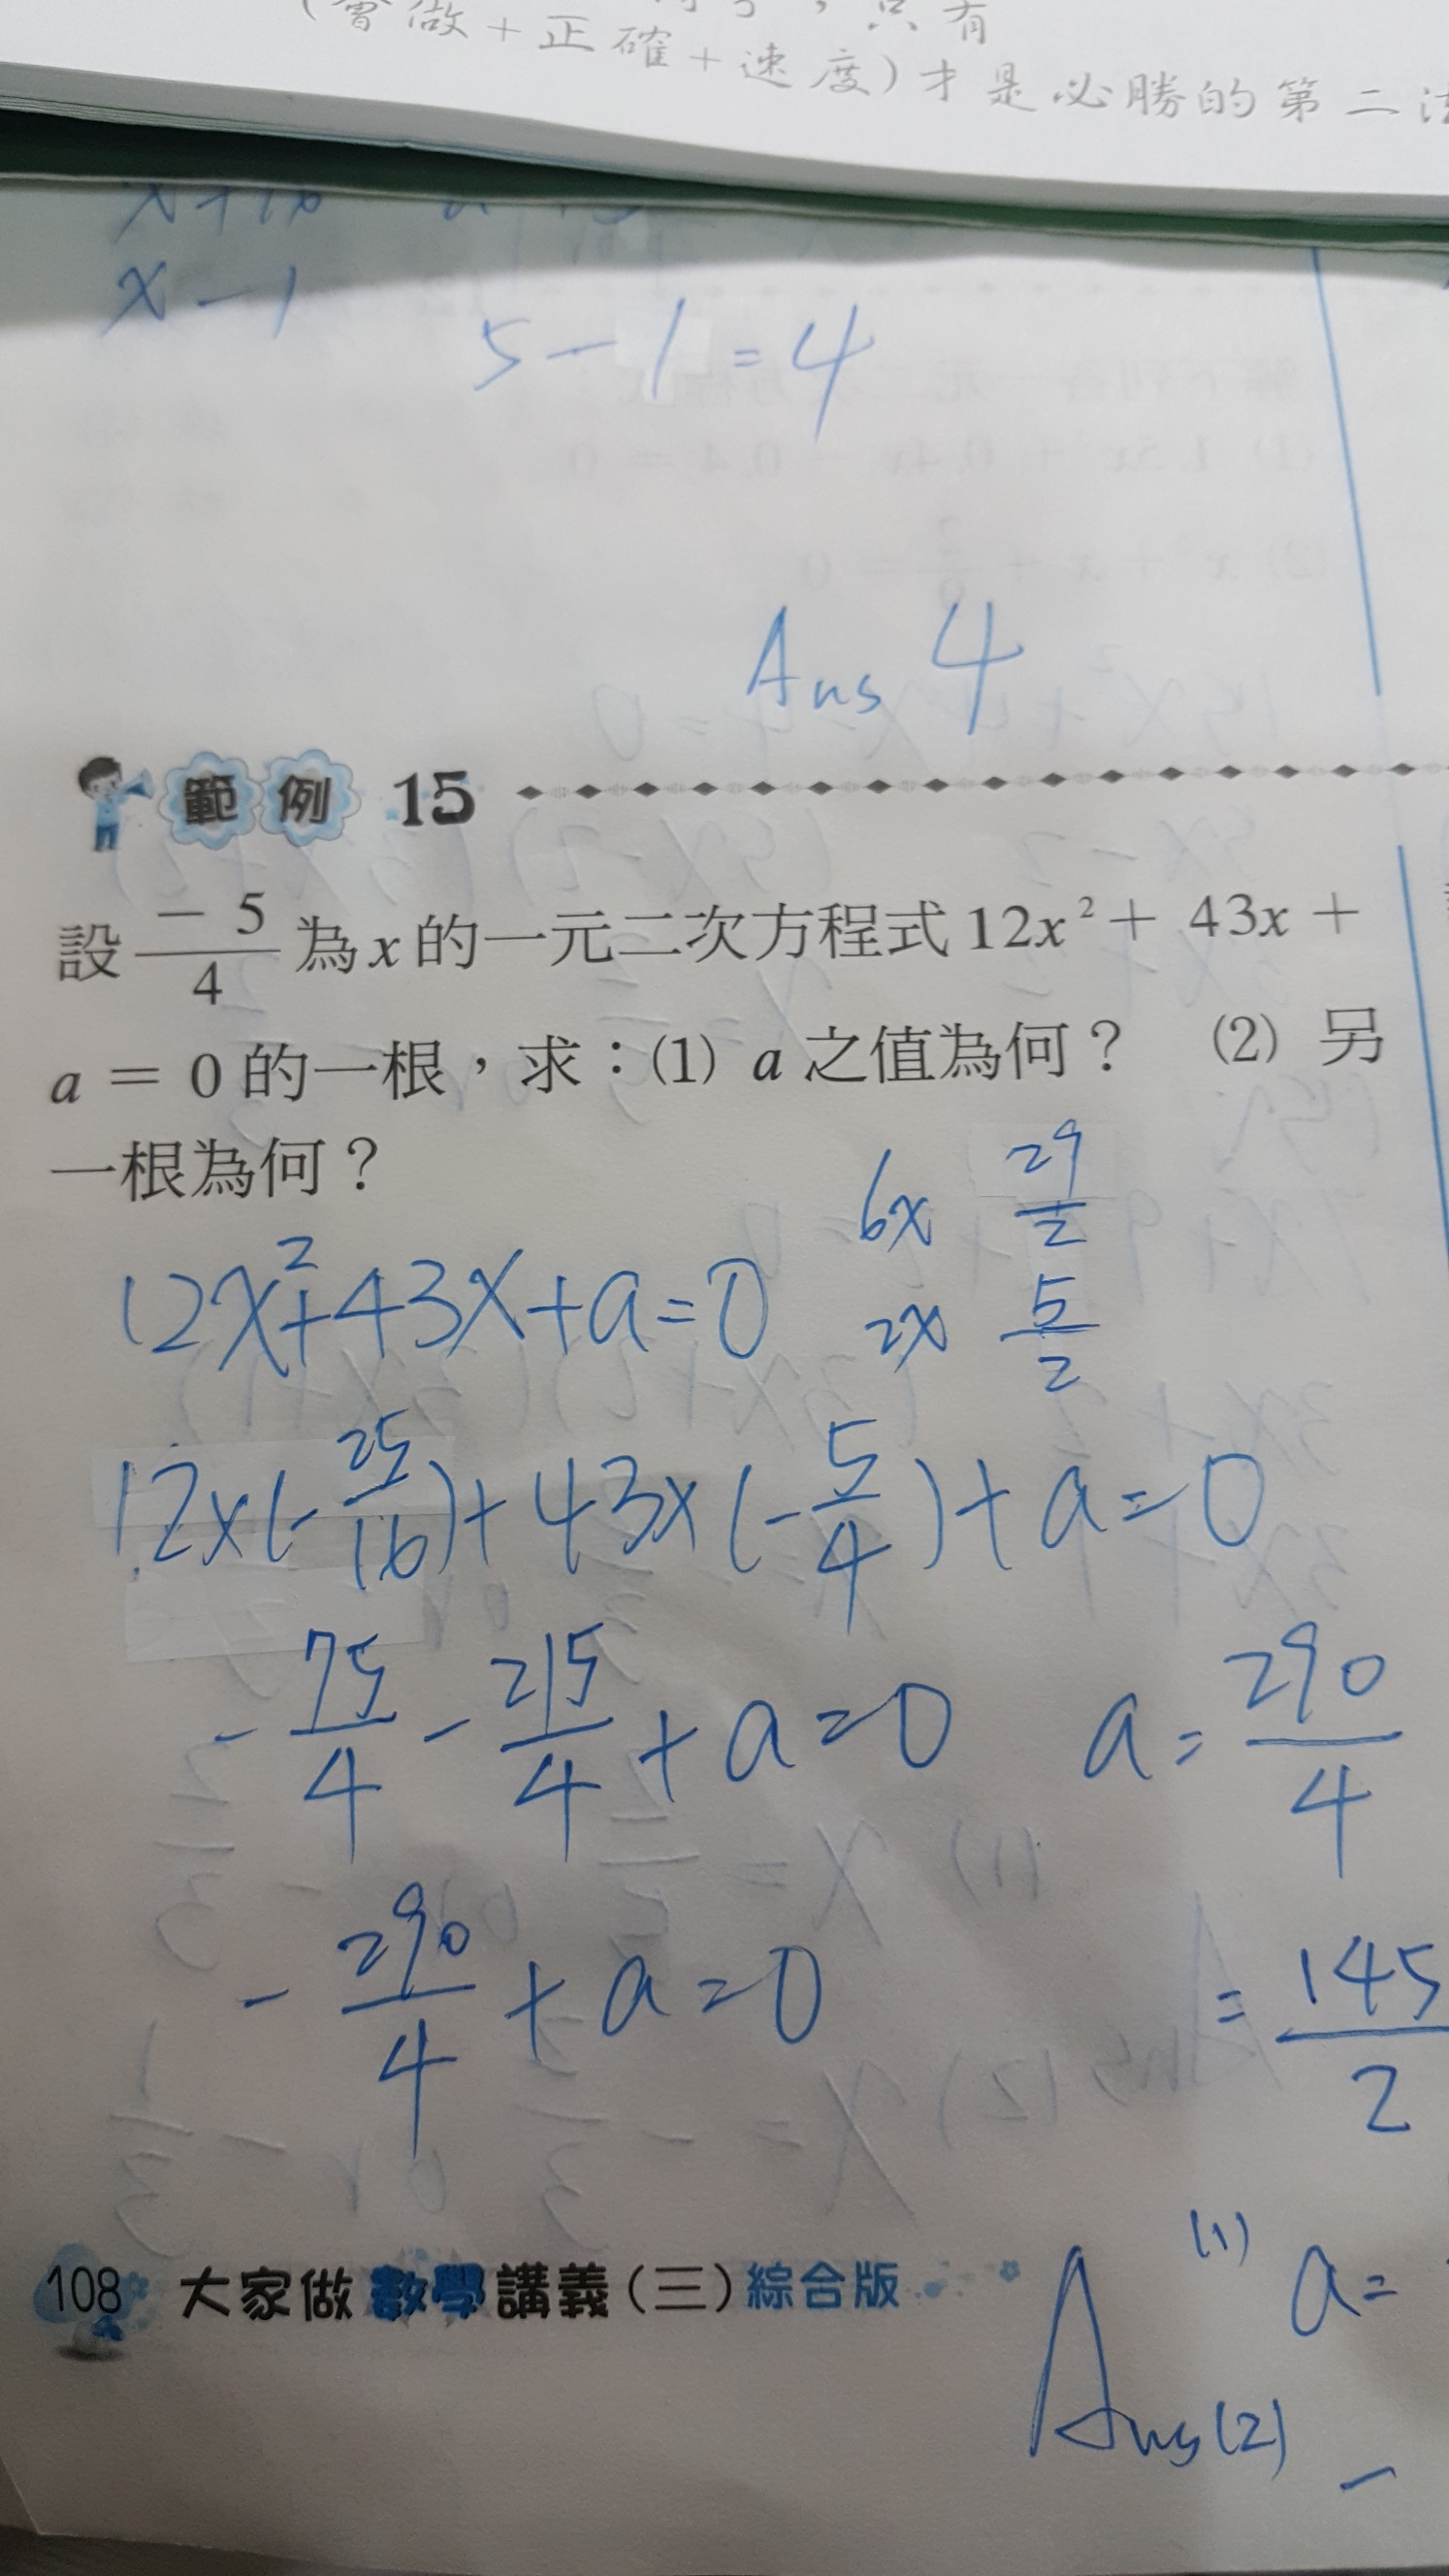 (會做+正確+速度)才是必勝的第二
x-1
5-1=4
Ans 4
範例 15
設 -5/4 為x的一元二次方程式 12x²+ 43x +
a = 0 的一根，求：(1) a 之值為何？ (2) 另
一根為何？
6x 29/2
2x 5/2
12x²+43x+a=0
12x(-25/16)+43x(-5/4)+a=0
-75/4-215/4+a=0 a=290/4
-290/4+a=0 =145/2
108 大家做數學講義(三)綜合版
Ans (1) a=
(2) -